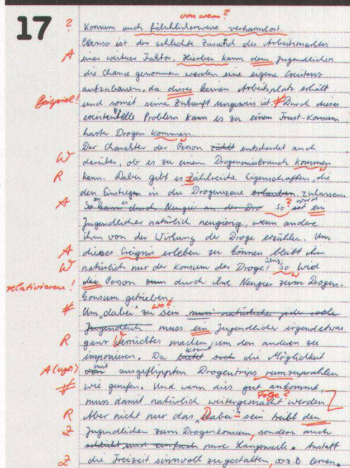 17
von wem?
? Konsum auch fälschlicherweise verharmlost.
Ebenso ist der schlechte Zustand des Arbeitsmarktes
A ein weiterer Faktor. Hierbei kann dem Jugendlichen
die Chance genommen werden eine eigene Existenz
aufzubauen, da dieser keinen Arbeitsplatz erhält
Beispiel! und somit seine Zukunft ist. Durch dieses
existentielle Problem kann es zu einem Frust-Konsum
harter Drogen kommen.
Der Charakter der Person entscheidet auch
W darüber, ob es zu einem Drogenmissbrauch kommen
R kann. Dabei gibt es zahlreiche Eigenschaften, die
den Einstieg in die Drogenszene erlauben zulassen.
A So kann durch Neugier an der Dro So ist ein
Jugendlicher natürlich neugierig, wenn andere
ihm von der Wirkung der Droge erzählen. Um
A dieses Ereignis erleben zu können bleibt ihm
W natürlich nur der Konsum der Droge! So wird
relativieren! die Person nun durch ihre Neugier zum Drogen-
konsum getrieben.
wo?
Um "dabei" zu sein
Jugendlich muss ein Jugendlicher irgendetwas
R ganz Verrücktes machen, um den anderen zu
imponieren. Da die Möglichkeit
A (ugs) mit ausgeflippten Drogentrips
wie gerufen. Und wenn dies gut ankommt,
Folge?
muss damit natürlich weitergemacht werden.
R Aber nicht nur das "Dabei"-sein treibt den
Z Jugendlichen zum Drogenkonsum, sondern auch
schlicht und einfach pure Langeweile. Anstatt
Z die Freizeit sinnvoll zu gestalten, wie z.B. Lernen,